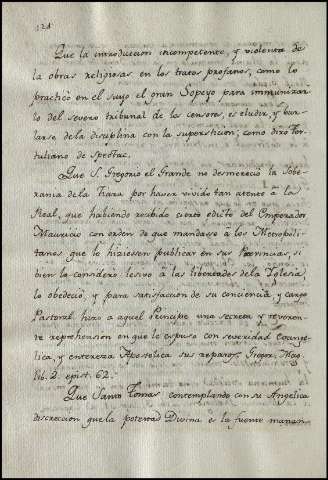 124
Que la introduccion incompetente, y violenta de
la obras religiosas en los tratos profanos, como lo
practicò en el suyo el gran Pompeyo para immunizar
lo del severo tribunal de la censora, es eludir, y bur
larse de la disciplina con la supersticion; como dixo Ter
tuliano de Spectac.
Que S. Gregorio el Grande no desmereciò la Sobe
rania de la Tiara por haver vivido tan atento â la
Real, que habiendo recibido cierto edicto del Emperador
Mauricio con orden de que mandasse â los Metropoli
tanos que lo hiziessen publicar en sus Provincias, si
bien la considerò lesivo â las libertades de la Iglesia,
lo obedeciò, y para satisfaccion de su conciencia, y cargo
Pastoral hizo a aquel Principe una secreta y reveren
te reprehension en que le expuso con severidad Evange
lica, y entereza Apostolica sus reparos. Gregor. Mag.
lib. 2. epist. 62.
Que Santo Tomas contemplando con su Angelica
discrecion que la potestad Divina è la fuente manan